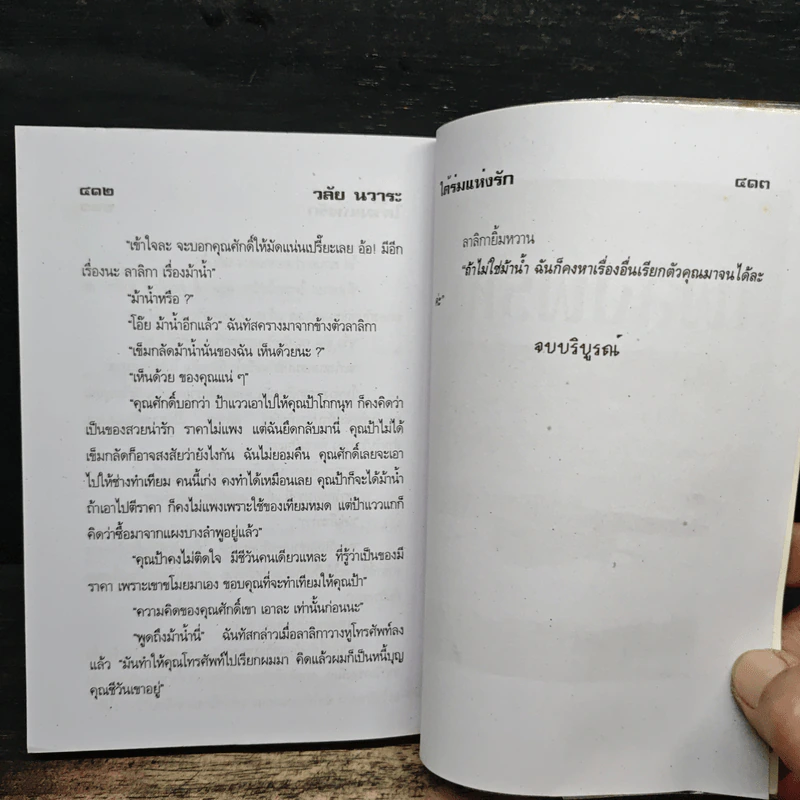 ๔๑๒ วลัย นวาระ
"เข้าใจละ จะบอกคุณศักดิ์ให้มัดแน่นเปรี๊ยะเลย อ้อ! มีอีก
เรื่องนะ ลาลิกา เรื่องม้าน้ำ"
"ม้าน้ำหรือ ?"
"โอ๊ย ม้าน้ำอีกแล้ว" ฉันทัสครางมาจากข้างตัวลาลิกา
"เข็มกลัดม้าน้ำนั่นของฉัน เห็นด้วยนะ ?"
"เห็นด้วย ของคุณแน่ ๆ"
"คุณศักดิ์บอกว่า ป้าแววเอาไปให้คุณป้าโกกนุท ก็คงคิดว่า
เป็นของสวยน่ารัก ราคาไม่แพง แต่ฉันยึดกลับมานี่ คุณป้าไม่ได้
เข็มกลัดก็อาจสงสัยว่ายังไงกัน ฉันไม่ยอมคืน คุณศักดิ์เลยจะเอา
ไปให้ช่างทำเทียม คนนี้เก่ง คงทำได้เหมือนเลย คุณป้าก็จะได้ม้าน้ำ
ถ้าเอาไปตีราคา ก็คงไม่แพงเพราะใช้ของเทียมหมด แต่ป้าแววแกก็
คิดว่าซื้อมาจากแผงบางลำพูอยู่แล้ว"
"คุณป้าคงไม่ติดใจ มีชีวันคนเดียวแหละ ที่รู้ว่าเป็นของมี
ราคา เพราะเขาขโมยมาเอง ขอบคุณที่จะทำเทียมให้คุณป้า"
"ความคิดของคุณศักดิ์เขา เอาละ เท่านั้นก่อนนะ"
"พูดถึงม้าน้ำนี่" ฉันทัสกล่าวเมื่อลาลิกาวางหูโทรศัพท์ลง
แล้ว "มันทำให้คุณโทรศัพท์ไปเรียกผมมา คิดแล้วผมก็เป็นหนี้บุญ
คุณชีวันเขาอยู่"
ใต้ร่มแห่งรัก ๔๑๓
ลาลิกายิ้มหวาน
"ถ้าไม่ใช่ม้าน้ำ ฉันก็คงหาเรื่องอื่นเรียกตัวคุณมาจนได้ละ
ค่ะ"
จบบริบูรณ์